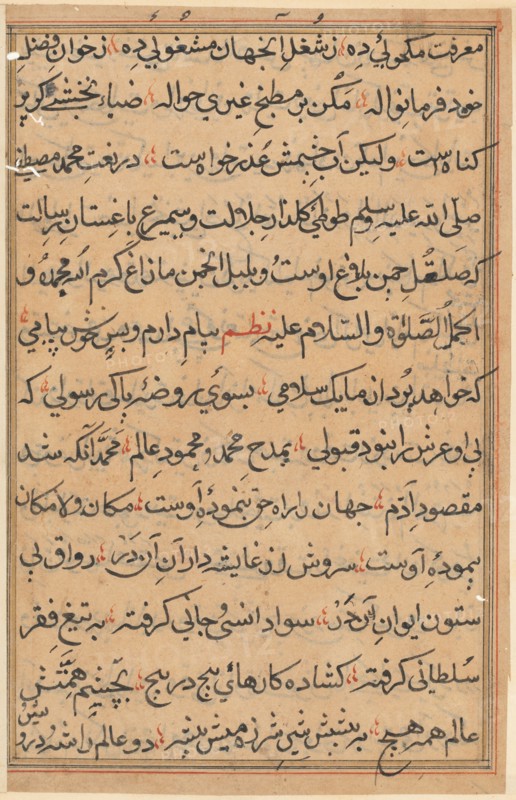 معرفت مکحولئ ده زشغل انجهان مشغولی ده زخوان فضل
خود فرما نواله مکن بر مطبخ غیری حواله ضیاء نخشبی کر پر
کناه است ولیکن آب چشمش عذر خواه است در نعت محمد مصطفی
صلی الله علیه وسلم طوطی کلذار جلالت وسیمرغ باغستان رسالت
که صلصل چمن بلاغ اوست و بلبل انجمن مازاغ کرم الله محمده و
اکمل الصلوة والسلام علیه نظم پیام دارم وبس خوش پیامی
که خواهد بود از ما یک سلامی بسوئی روضۀ پاکی رسولی که
بی او عرش را نبود قبولی بمدح محمد و محمود عالم محمد آنکه شد
مقصود آدم جهان را راه حق بنموده اوست مکان ولا مکان
پیموده اوست سروش از غایشه داران آن در رواق بی
ستون ایوان آن سواد انسی و جانی کرفته به تیغ فقر
سلطانی کرفته کشاده کارهای پیچ در پیچ بچشم همتش
عالم همه هیچ به پیشش شیر شرزه میش پیشه دو عالم راشده درو